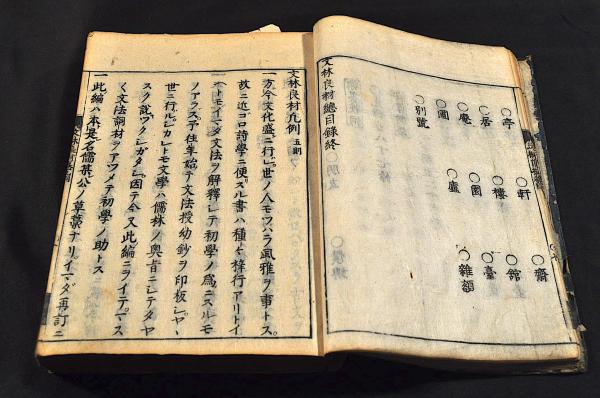 ○亭 ○軒 ○齋
○居 ○樓 ○館
○庵 ○園 ○臺
○圃 ○廬 ○雜額
○別號
文林良材總目録終
文林良材凡例 五則
一方今文化盛ニ行レ世ノ人モツハラ風雅ヲ事トス。
故ニ近ゴロ詩學ニ便スル書ハ種々梓行アリトイ
ヘトモイマダ文法ヲ解釋シテ初學ノ爲ニスルモ
ノアラス。予往年始テ文法授幼鈔ヲ印板シヤヽ
世ニ行ルシカレトモ文學ハ儒林ノ奥旨ニシテタヤ
スク説ツクシガタシ因テ今又此編ニヲイテマス
〱文法詞材ヲアツメテ初學ノ助トス
一此編ハ本是名儒某公ノ草藁ナリイマダ再訂ニ